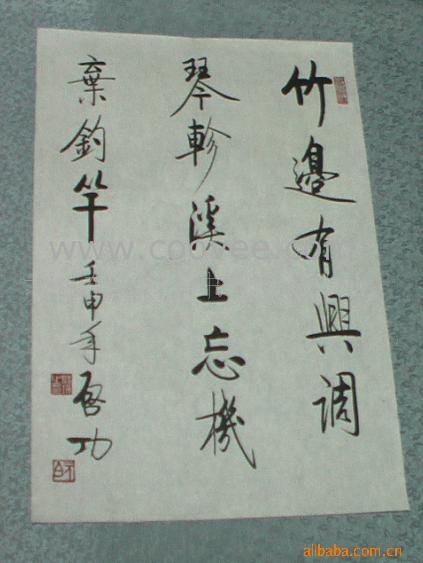 竹邊有興調
琴軫溪上忘機
棄釣竿壬申年啓功
www.coovee.com
alibaba.com.cn